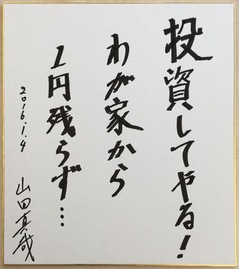 投資してやる!
わが家から
1円残らず…
2016.1.9
山田真哉